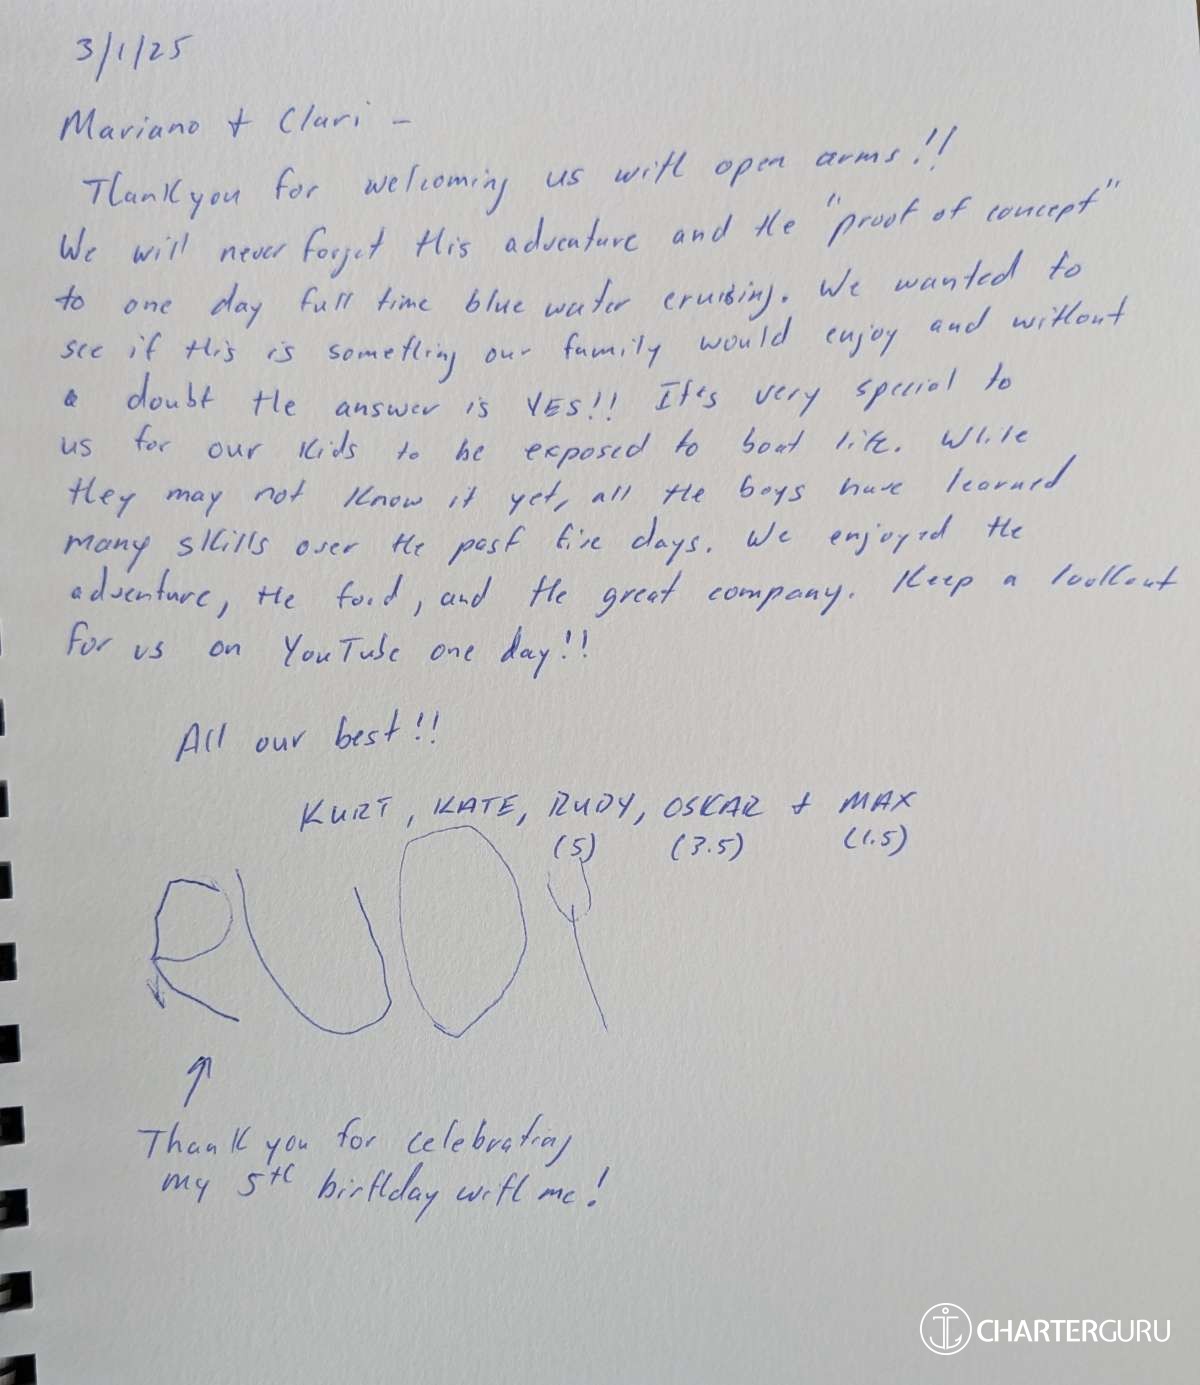 3/1/25
Mariano + Clari -
Thank you for welcoming us with open arms!!
We will never forget this adventure and the "proof of concept"
to one day full time blue water cruising. We wanted to
see if this is something our family would enjoy and without
a doubt the answer is YES!! It's very special to
us for our kids to be exposed to boat life. While
they may not know it yet, all the boys have learned
many skills over the past five days. We enjoyed the
adventure, the food, and the great company. Keep a lookout
for us on YouTube one day!!
All our best!!
KURT, KATE, RUDY, OSKAR + MAX
(5) (3.5) (1.5)
RUDY
Thank you for celebrating
my 5th birthday with me!
CHARTERGURU